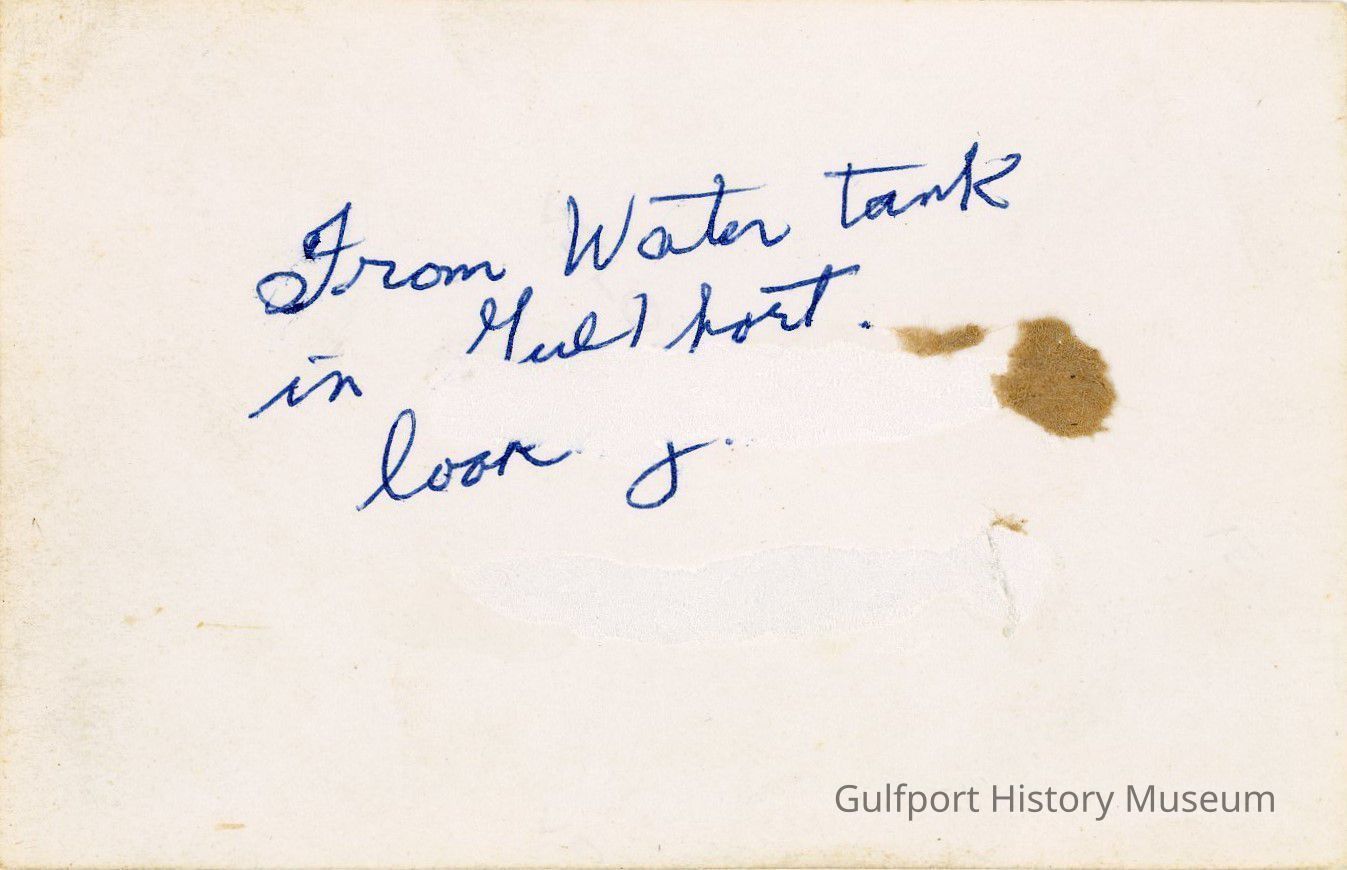 From Water tank
in Gulfport.
look
Gulfport History Museum